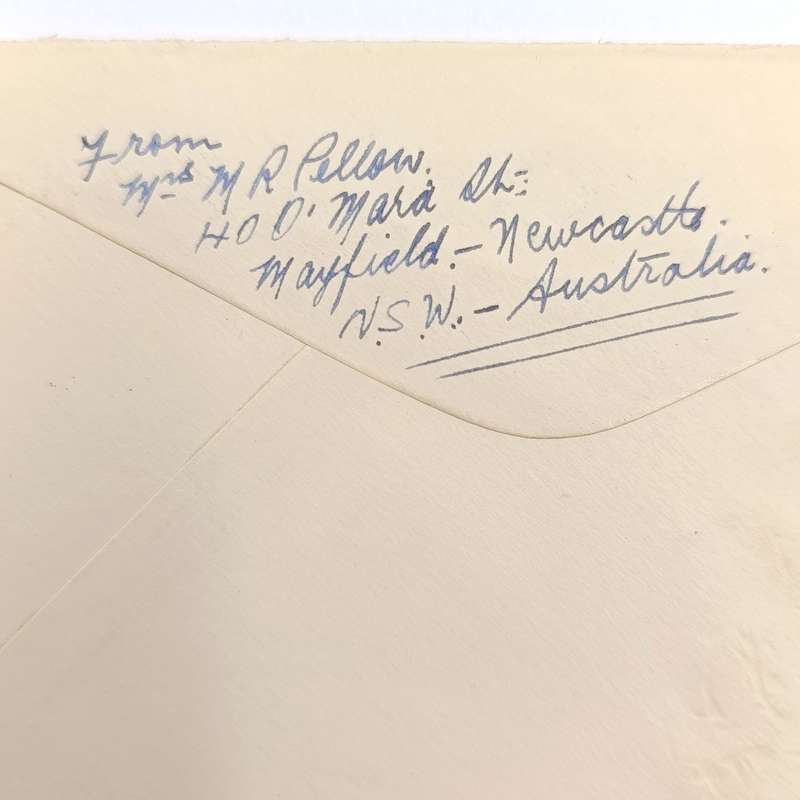 From
Mrs M R Pellow.
40 O'Mara St:
Mayfield. - Newcastle.
N.S.W. - Australia.